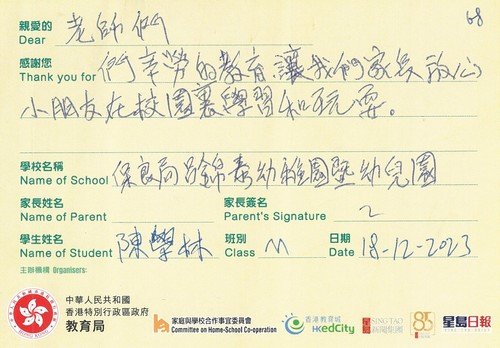 68
親愛的 老師們
Dear
感謝您 們辛勞的教育讓我們家長放心
Thank you for
小朋友在校園裏學習和玩耍。
學校名稱 保良局 幼稚園暨幼兒園
Name of School
家長姓名 家長簽名
Name of Parent Parent's Signature
學生姓名 陳學林 班別 日期 18-12-2023
Name of Student Class Date
主辦機構 Organisers:
中華人民共和國
香港特別行政區政府
教育局
家庭與學校合作事宜委員會
Committee on Home-School Co-operation
香港教育城
HKedCity
SING TAO
星島新聞集團
85
星島日報